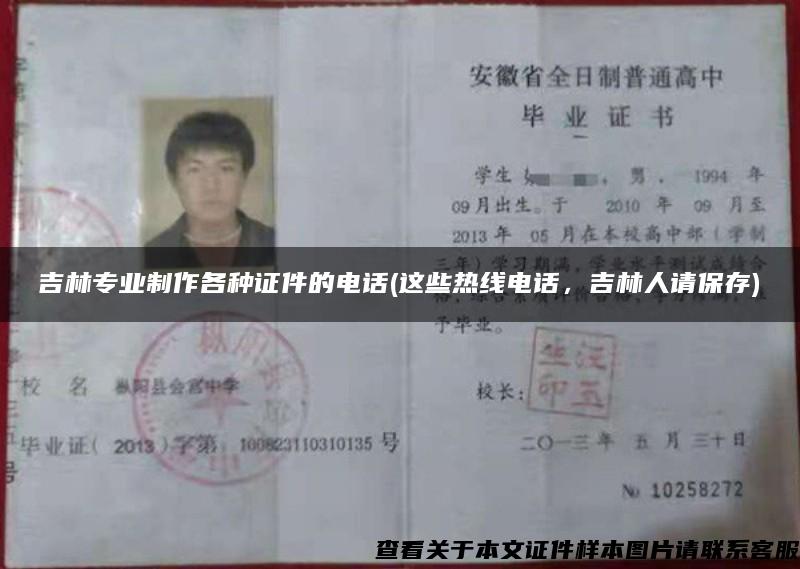 安徽省全日制普通高中
毕业证书
学生 ,男, 1994 年
09月出生。于 2010 年 09 月至
2013 年 05 月在本校高中部(学制
三年)学习期满,学业水平测试成绩合
吉林专业制作各种证件的电话(这些热线电话，吉林人请保存)
予毕业。
校 名 枞阳县会宫中学
校长:
汪五
生印
毕业证( 2013 )字第 100823110310135 号
二〇一三 年 五 月 三十 日
№ 10258272
查看关于本文证件样本图片请联系客服